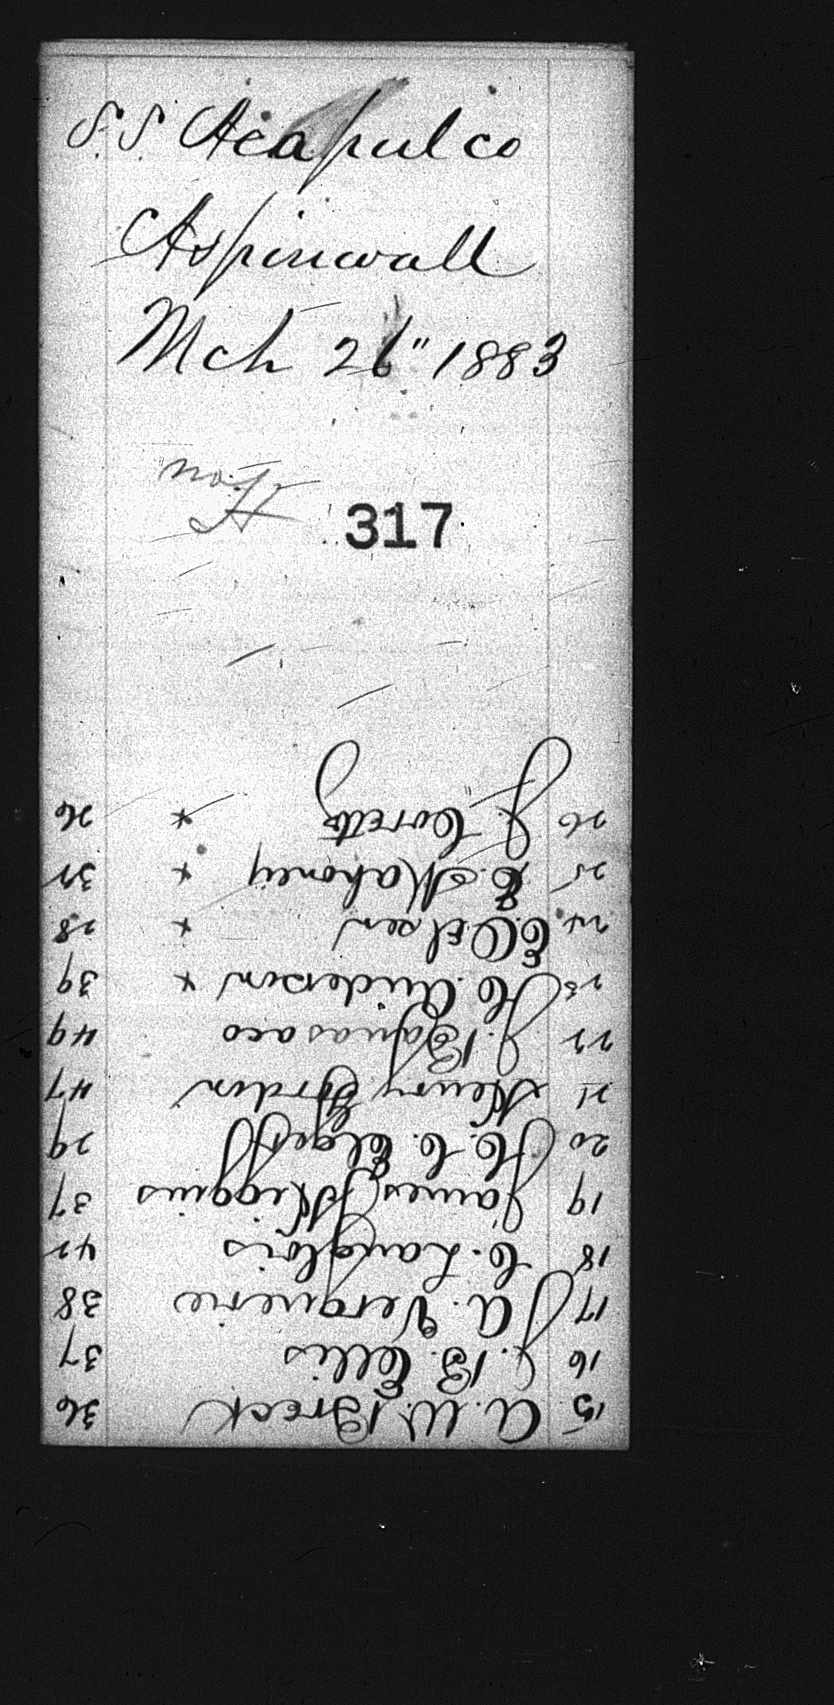 S.S. Acapulco
Aspinwall
Mch 26" 1883
317
15 A. W. Breck 36
16 J. B. Ellis 37
17 J A. Verquerie 38
18 C. Langlois 42
19 James Higgins 37
20 H. C. Elgeff 29
21 Henry Gordon 47
22 J. 49
23 H. Anderson × 39
24 E. Olsen × 28
25 E. Mahoney × 32
26 J. Coretto × 26